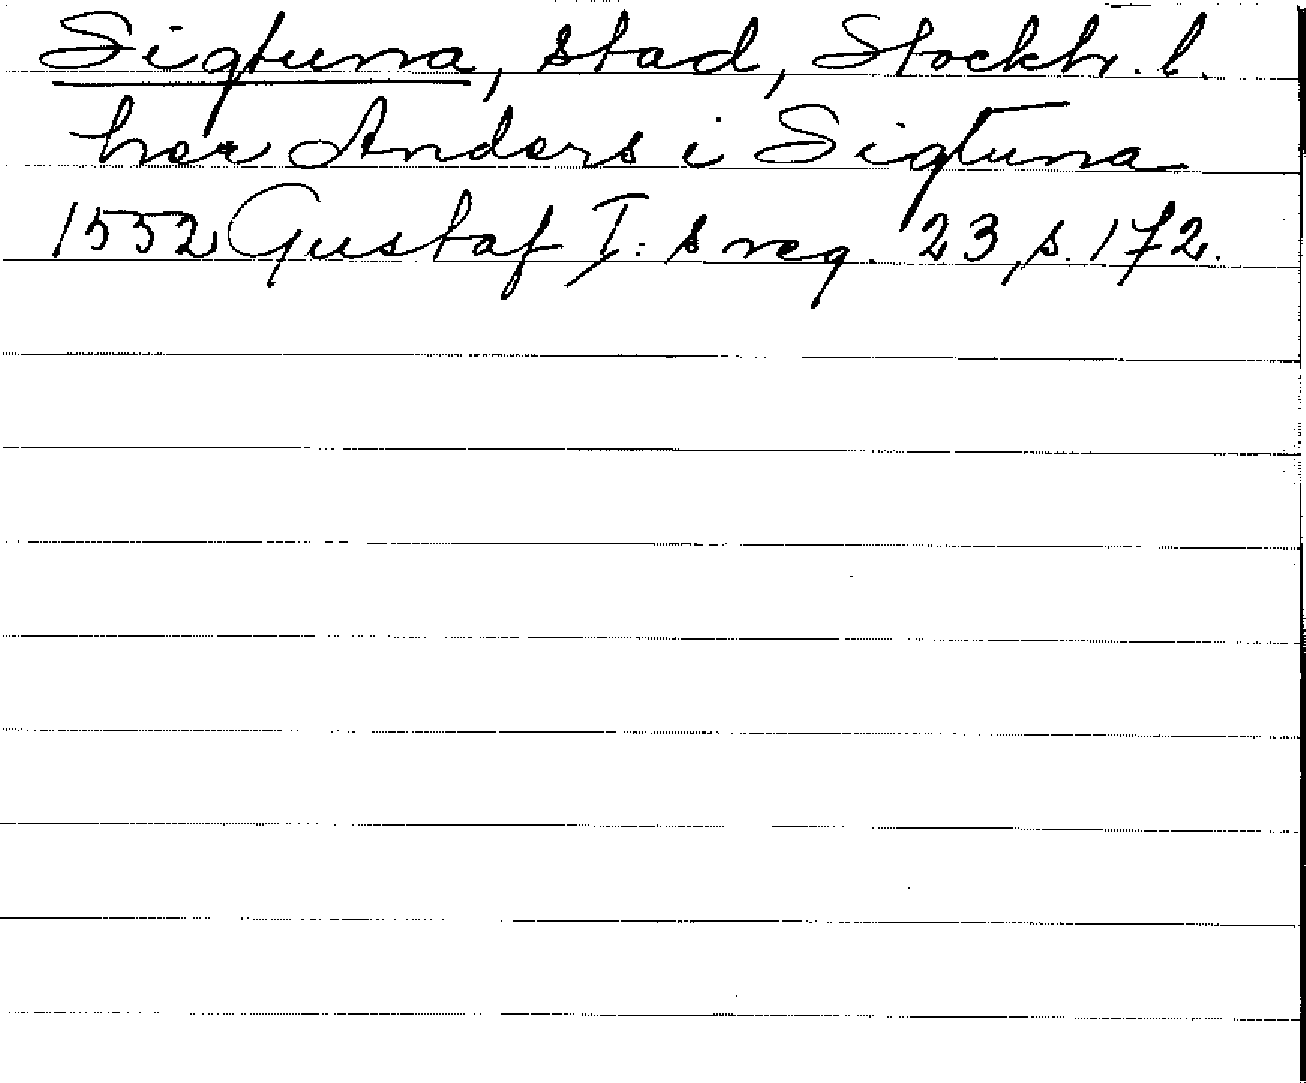 Sigtuna, stad, Stockh. l.
her Anders i Sigtuna
1552 Gustaf I: s reg. 23, s. 172.